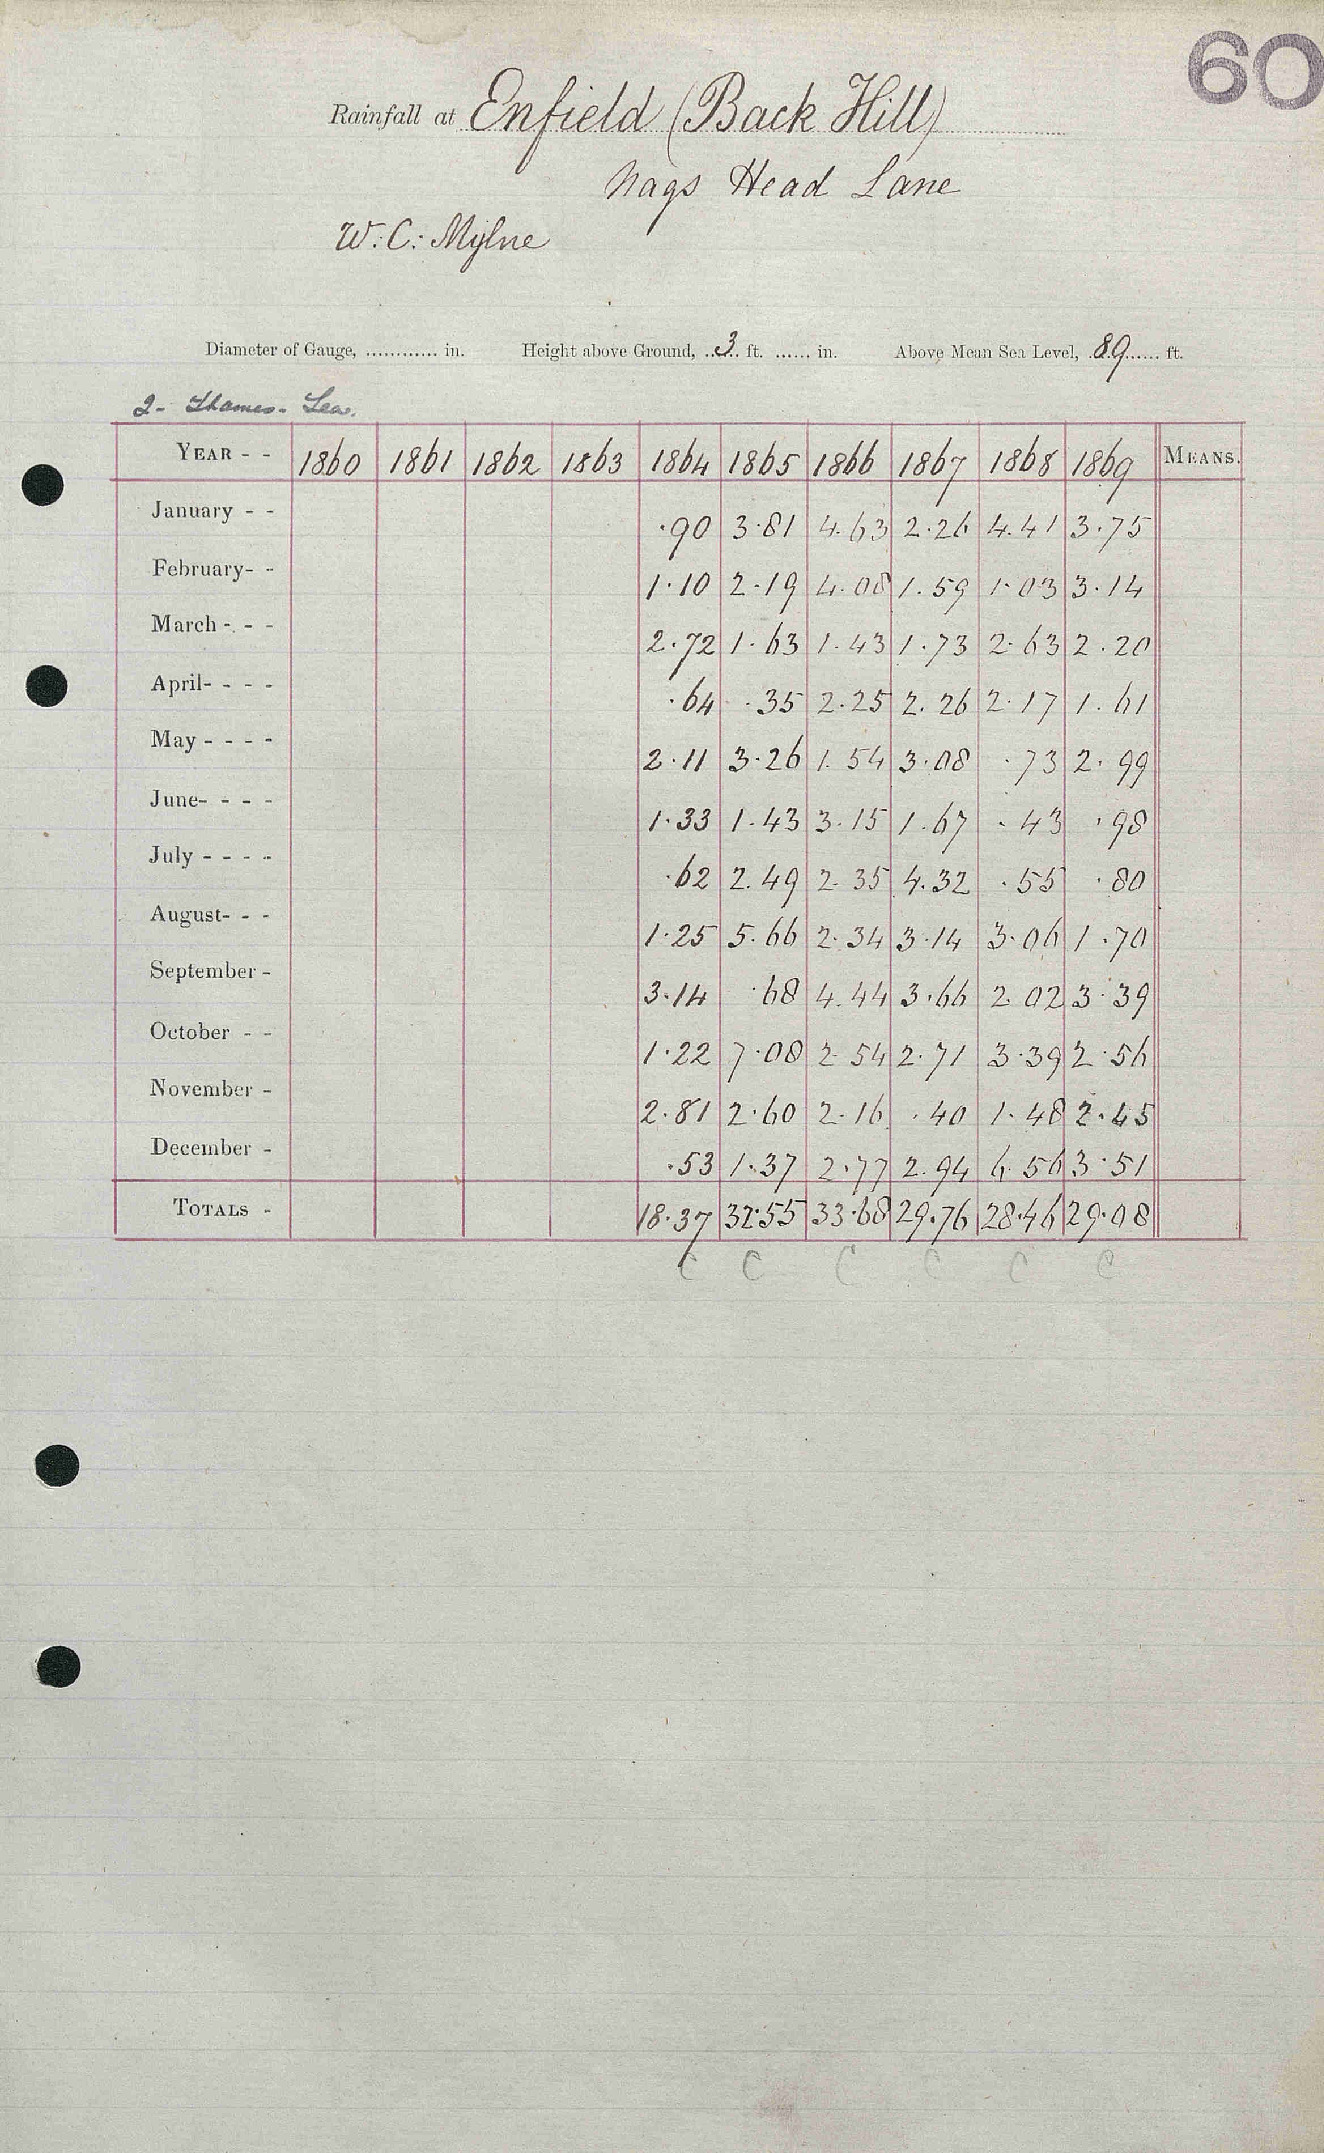 60
Rainfall at Enfield (Back Hill)
Nags Head Lane
W. C. Mylne
Diameter of Gauge, ............ in. Height above Ground, ..3.. ft. ...... in. Above Mean Sea Level, .89...... ft.
2- Thames - Lea.
YEAR - - 1860 1861 1862 1863 1864 1865 1866 1867 1868 1869 MEANS.
January - - ·90 3·81 4.63 2·26 4.41 3·75
February- - 1·10 2·19 4·08 1·59 1·03 3·14
March - - - 2·72 1·63 1·43 1·73 2·63 2·20
April- - - - ·64 ·35 2·25 2·26 2·17 1·61
May - - - - 2·11 3·26 1·54 3·08 ·73 2·99
June- - - - 1·33 1·43 3·15 1·67 ·43 ·98
July - - - - ·62 2.49 2·35 4.32 ·55 ·80
August- - - 1·25 5·66 2·34 3·14 3·06 1·70
September - 3·14 ·68 4.44 3·66 2·02 3·39
October - - 1·22 7·08 2·54 2·71 3·39 2·56
November - 2·81 2·60 2·16 ·40 1·48 2·45
December - ·53 1·37 2·77 2.94 6·56 3·51
TOTALS - 18·37 32·55 33·68 29·76 28·46 29·08
C C C C C C